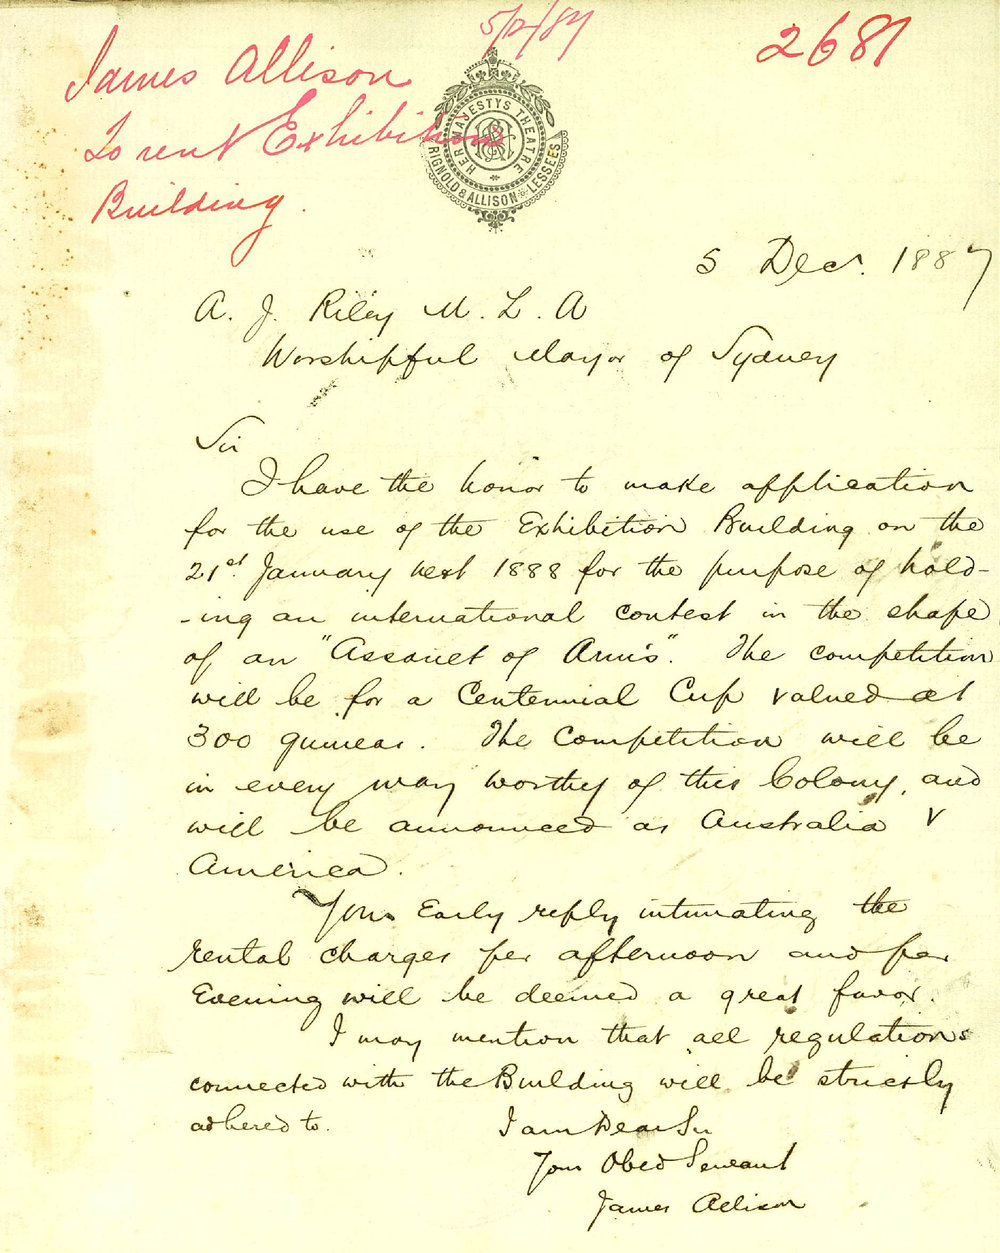 5/12/87
2681
James Allison
To rent Exhibition
Building.
HER MAJESTYS THEATRE
RIGNOLD & ALLISON LESSEES
5 Decr. 1887
A. J. Riley M. L. A
Worshipful Mayor of Sydney
Sir
I have the honor to make application
for the use of the Exhibition Building on the
21st January next 1888 for the purpose of hold-
-ing an international contest in the shape
of an "Assault of Arms". The competition
will be for a Centennial Cup valued at
300 guineas. The Competition will be
in every way worthy of this Colony, and
will be announced as Australia v
America.
Your Early reply intimating the
rental charges per afternoon and per
Evening will be deemed a great favor.
I may mention that all regulations
connected with the Building will be strictly
adhered to.
I am Dear Sir
Your Obed Servant
James Allison